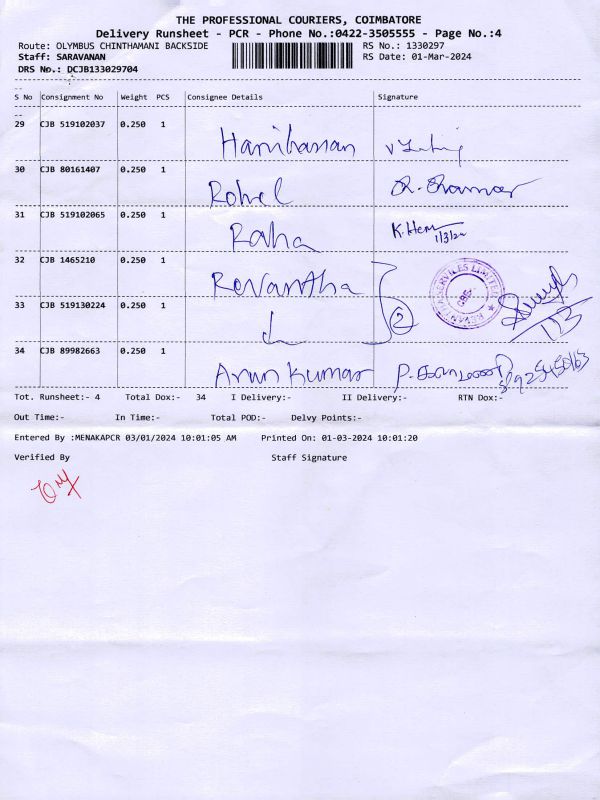 THE PROFESSIONAL COURIERS, COIMBATORE
Delivery Runsheet - PCR - Phone No.:0422-3505555 - Page No.:4
Route: OLYMBUS CHINTHAMANI BACKSIDE RS No.: 1330297
Staff: SARAVANAN RS Date: 01-Mar-2024
DRS No.: DCJB133029704
S No Consignment No Weight PCS Consignee Details Signature
29 CJB 519102037 0.250 1 Hariharan
30 CJB 80161407 0.250 1 Rohel
31 CJB 519102065 0.250 1 Raha K. Hem
1/3/24
32 CJB 1465210 0.250 1 Revantha
33 CJB 519130224 0.250 1 2 1/3
34 CJB 89982663 0.250 1 Arun Kumar
Tot. Runsheet:- 4 Total Dox:- 34 I Delivery:- II Delivery:- RTN Dox:-
Out Time:- In Time:- Total POD:- Delvy Points:-
Entered By :MENAKAPCR 03/01/2024 10:01:05 AM Printed On: 01-03-2024 10:01:20
Verified By Staff Signature